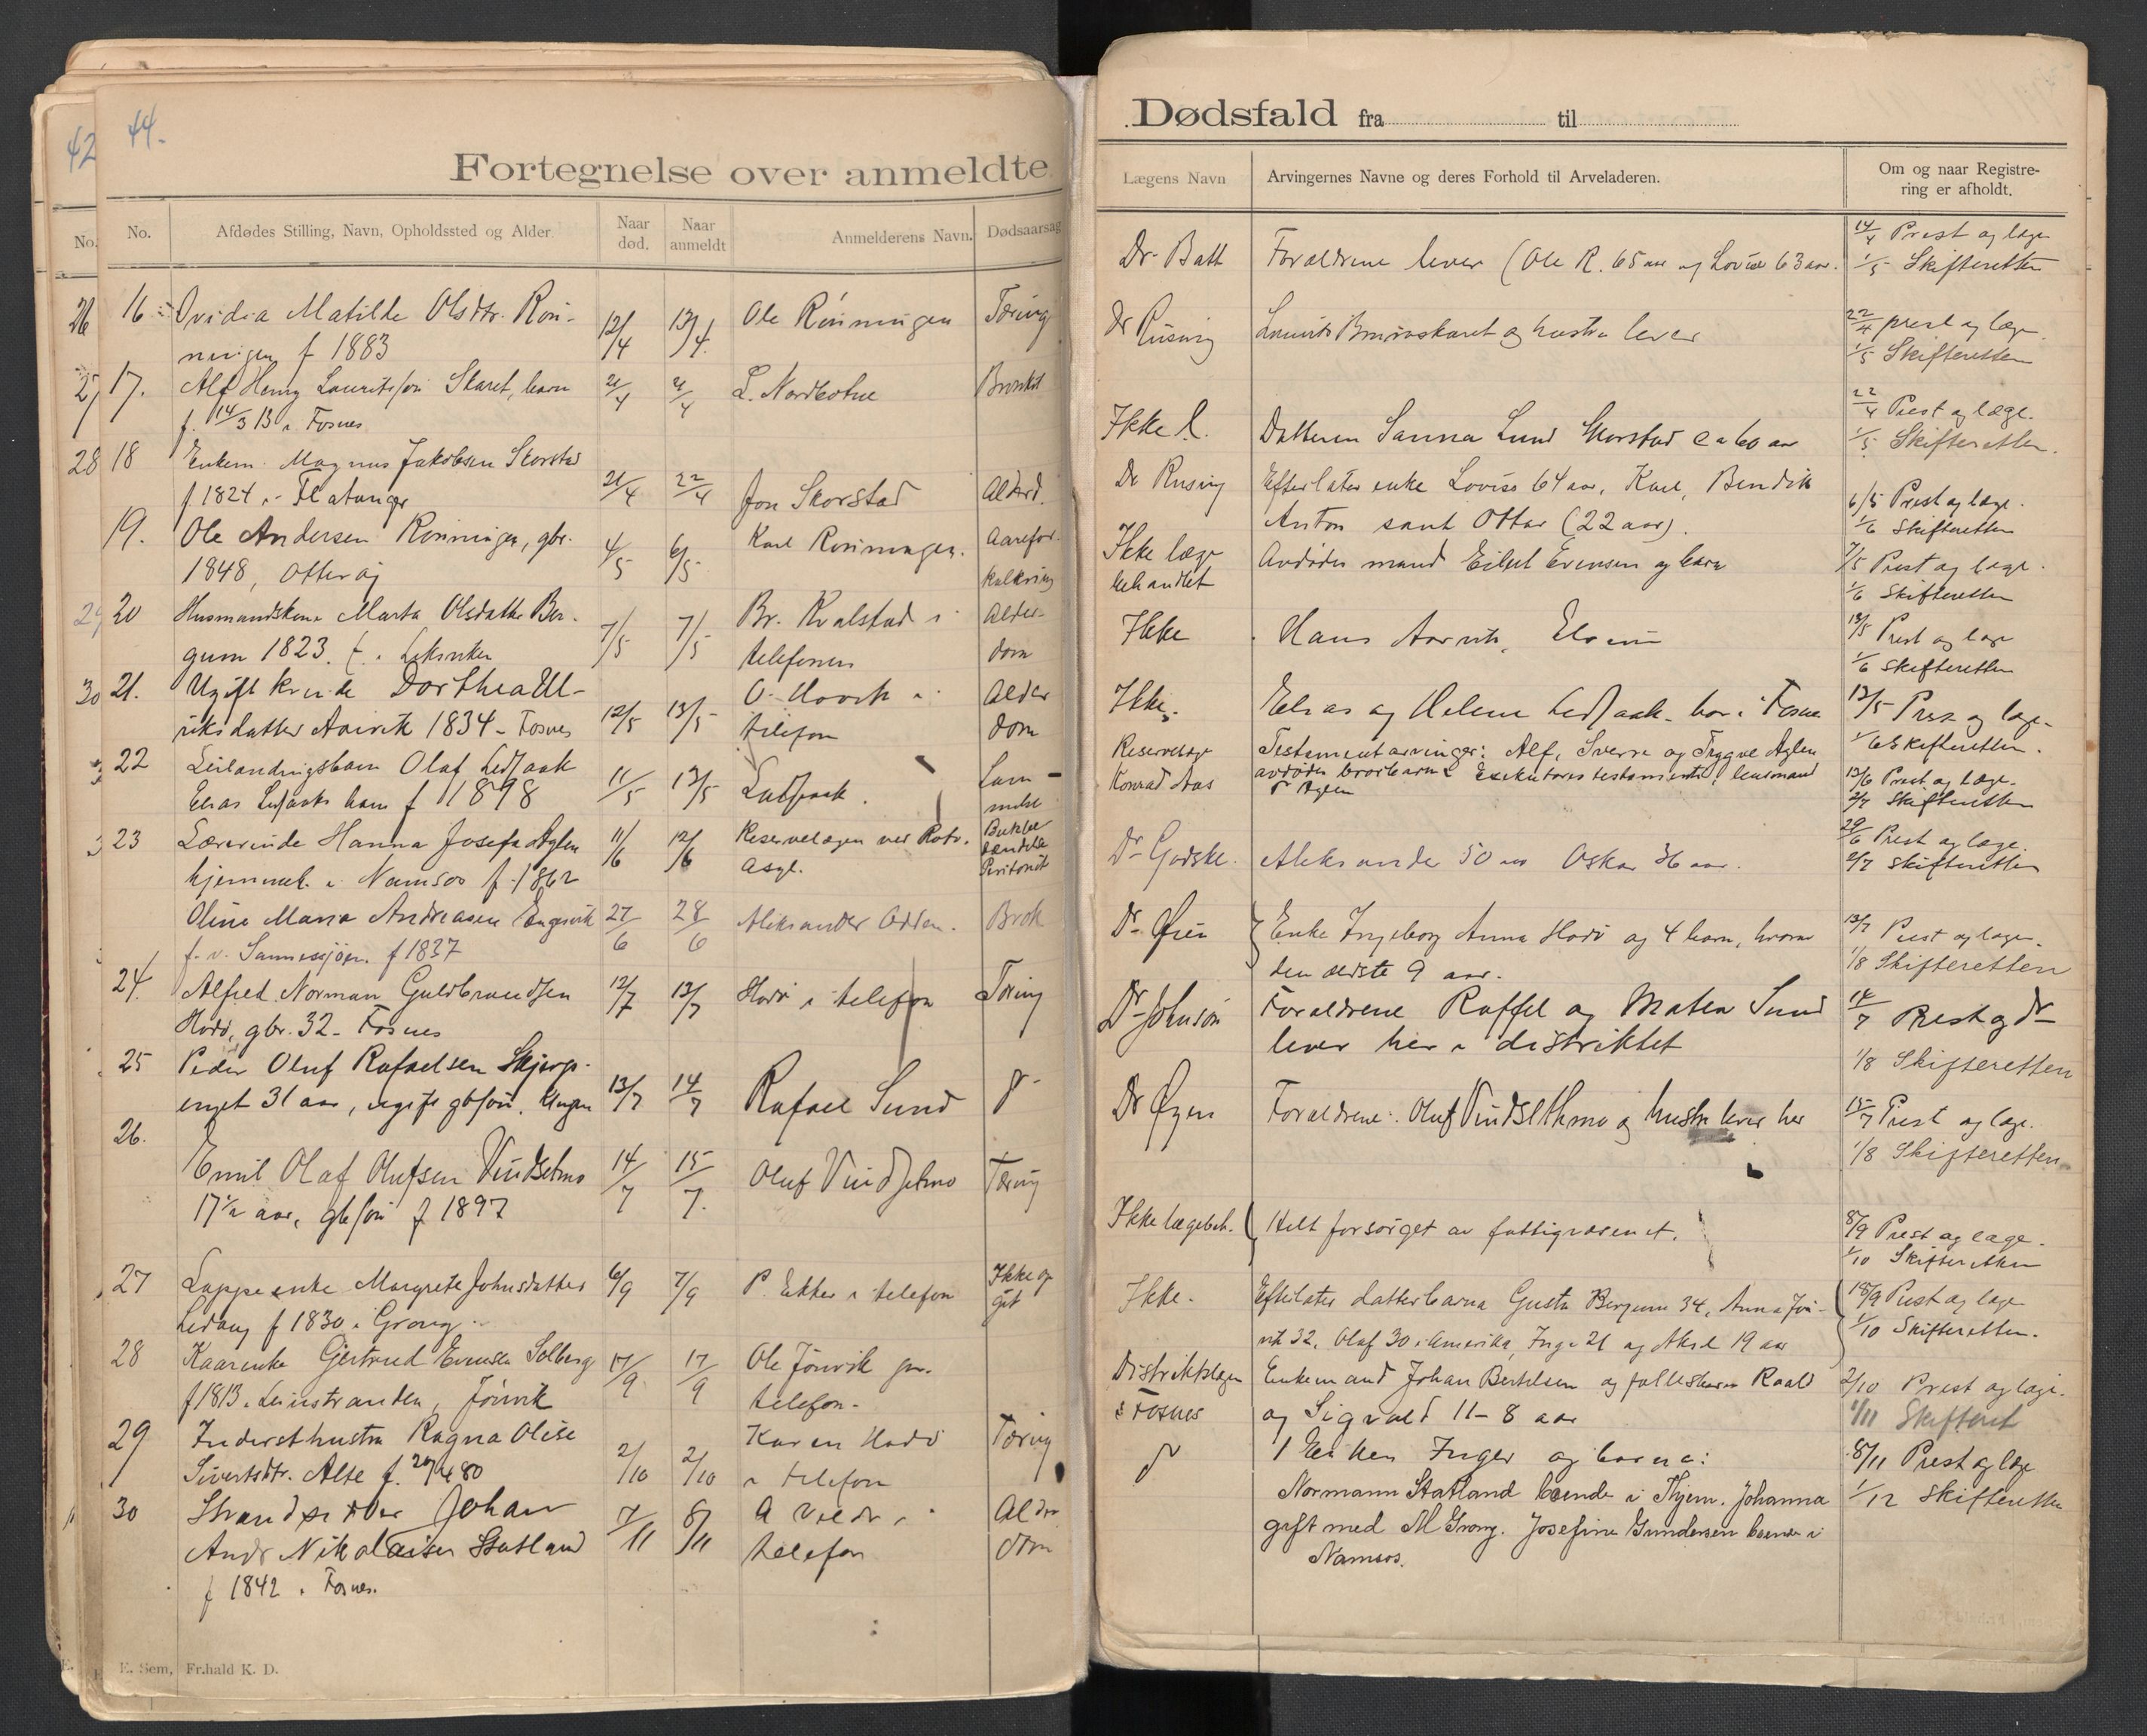 42
44.
Fortegnelse over anmeldte
No.
No.
Afdødes Stilling, Navn, Opholdssted og Alder.
Naar død.
Naar anmeldt
Anmelderens Navn.
Dødsaarsag
26
16
Ovidia Matilde Olsdtr. Røn-
ningen f 1883
12/4
13/4.
Ole Rönningen
Tæring
27
17.
Alf Henry Lauritssön Skaret, barn
f. 14/3 13 i Fosnes
21/4
21/4
L. Nordbotne
28
18
Enkem. Magnus Jakobsen Skorstad
f 1824 i Flatanger
21/4
22/4
Jon Skorstad
Alderd.
19.
Ole Andersen Rönningen, gbr.
1848, Otterøy
4/5
6/5
Karl Rönningen.
Aarefor-
kalkning
29
20
Husmandskone Marta Olsdatter Ber-
gum 1823. f. i Leksviken
7/5
7/5
Br. Kvalstad i
telefonen
Alder-
dom
30
21.
Ugift kvinde Dorthea Ul-
riksdatter Aarvik 1834 - Fosnes
12/5
13/5
telefon
Alder
dom
22
Leilændingsbarn Olaf Ledsaak
Elias Ledsaaks barn f 1898
11/5
13/5
Ledsaak.
Lam-
melse
23
Lærerinde Hanna Josefa Aglen
hjemmeh. i Namsos f. 1862
11/6
12/6
Reservelægen ved Rotv.
Asyl.
Peritonit
Oline Maria Andreasen Engesvik
f. v. Sannessjøen. f 1837
27/6
28/6
Aleksander Odden.
Brok
24.
Alfred Norman Guldbrandsen
Hodö, gbr. 32 - Fosnes
12/7
13/7
Hodö i telefon
Tæring
25
Peder Oluf Rafaelsen Skjærp-
enget 31 aar, ugift gbsön.
13/7
14/7
Rafael Sund
26.
Emil Olaf Olufsen Vindsetmo
17½ aar, gbsön f 1897
14/7
15/7.
Oluf Vindsetmo
Tæring
27
Lappeenke Margrete Johnsdatter
f 1830 i Grong.
6/9
7/9
P. Ekker i telefon
Ikke op-
git
28
Kaarenke Gjertrud Evensen Solberg
f 1813. Leinstranden, Jönvik
17/9
17/9
Ole Jönvik pr.
telefon.
29
Indersthustru Ragna Olise
Sivertsdtr. Alte f. 20/4 80
2/10
2/10
Karen Hodö
i telefon
Tæring
30
Strandsidder Johan
Andr Nikolaisen Statland
f 1842 i Fosnes.
7/11
8/11
telefon
Alder
dom
E. Sem, Fr.hald K. D.
Dødsfald fra til
Lægens Navn
Arvingernes Navne og deres Forhold til Arveladeren.
Om og naar Registre-
ring er afholdt.
Dr. Batt
Forældrene lever (Ole R. 65 aar og Lovise 63 aar.
14/4 Prest og læge
1/5 Skifteretten
Dr Rusing
Laurits Brunskaret og hustru lever
22/4 prest og læge
1/5 Skifteretten
Ikke l.
Datteren Sanna Lund Skorstad ca 60 aar
22/4 Prest og læge.
1/5 Skifteretten.
Dr Rusing
Efterlater enke Lovise 64 aar, Karl, Bendik
Anton samt Ottar (22 aar).
6/5 Prest og læge.
1/6 Skifteretten
Ikke læge
behandlet
Avdødes mand Eilert Evensen og barn
7/5 Prest og læge.
1/6 Skifteretten
Ikke
Hans Aarvik,
13/5 Prest og læge
1/6 Skifteretten
Ikke.
Elias og Helene Ledsaak. bor i Fosnes
13/5 Prest og læge
1/6 Skifteretten.
Reservelæge
Konrad Aas
Testamentarvinger: Alf, Sverre og Trygve Aglen
avdødes brorbarn. Executores testamenti: lensmand
Aglen
13/6 Prest og læge.
2/7 Skifteretten
Dr Godske.
Aleksander 50 aar Oskar 36 aar.
29/6 Prest og læge.
2/7 Skifteretten
Dr Øien
Enke Ingeborg Anna Hodö og 4 barn, hvorav
den ældste 9 aar.
13/7 Prest og lægen.
1/8 Skifteretten
Dr Johnson
Forældrene Raffel og Matea Sund
lever her i distriktet
14/7 Prest og dr
1/8 Skifteretten
Dr Øyen
Forældrene: Oluf Vindsethmo og hustru lever her
15/7 Prest og læge.
1/8 Skifteretten
Ikke lægebeh.
Helt forsørget av fattigvæsenet.
8/9 Prest og læge.
1/10 Skifteretten
Ikke.
Efterlater datterbarna Gusta Bergum 34, Anna Jön-
vik 32, Olaf 30 i Amerika, Inga 21 og Aksel 19 aar
18/9 Prest og læge
1/10 Skifteretten.
Distriktslægen
i Fosnes
Enkemand Johan Bertelsen og fællesbarn Roald
og Sigvald 11 - 8 aar
2/10 Prest og læge.
1/11 Skifteret
Enken Inger og barna:
Normann Statland boende i Thjem. Johanna
gift med M Grong. Josefine Gundersen boende i
Namsos.
8/11 Prest og læge
1/12 Skifteretten